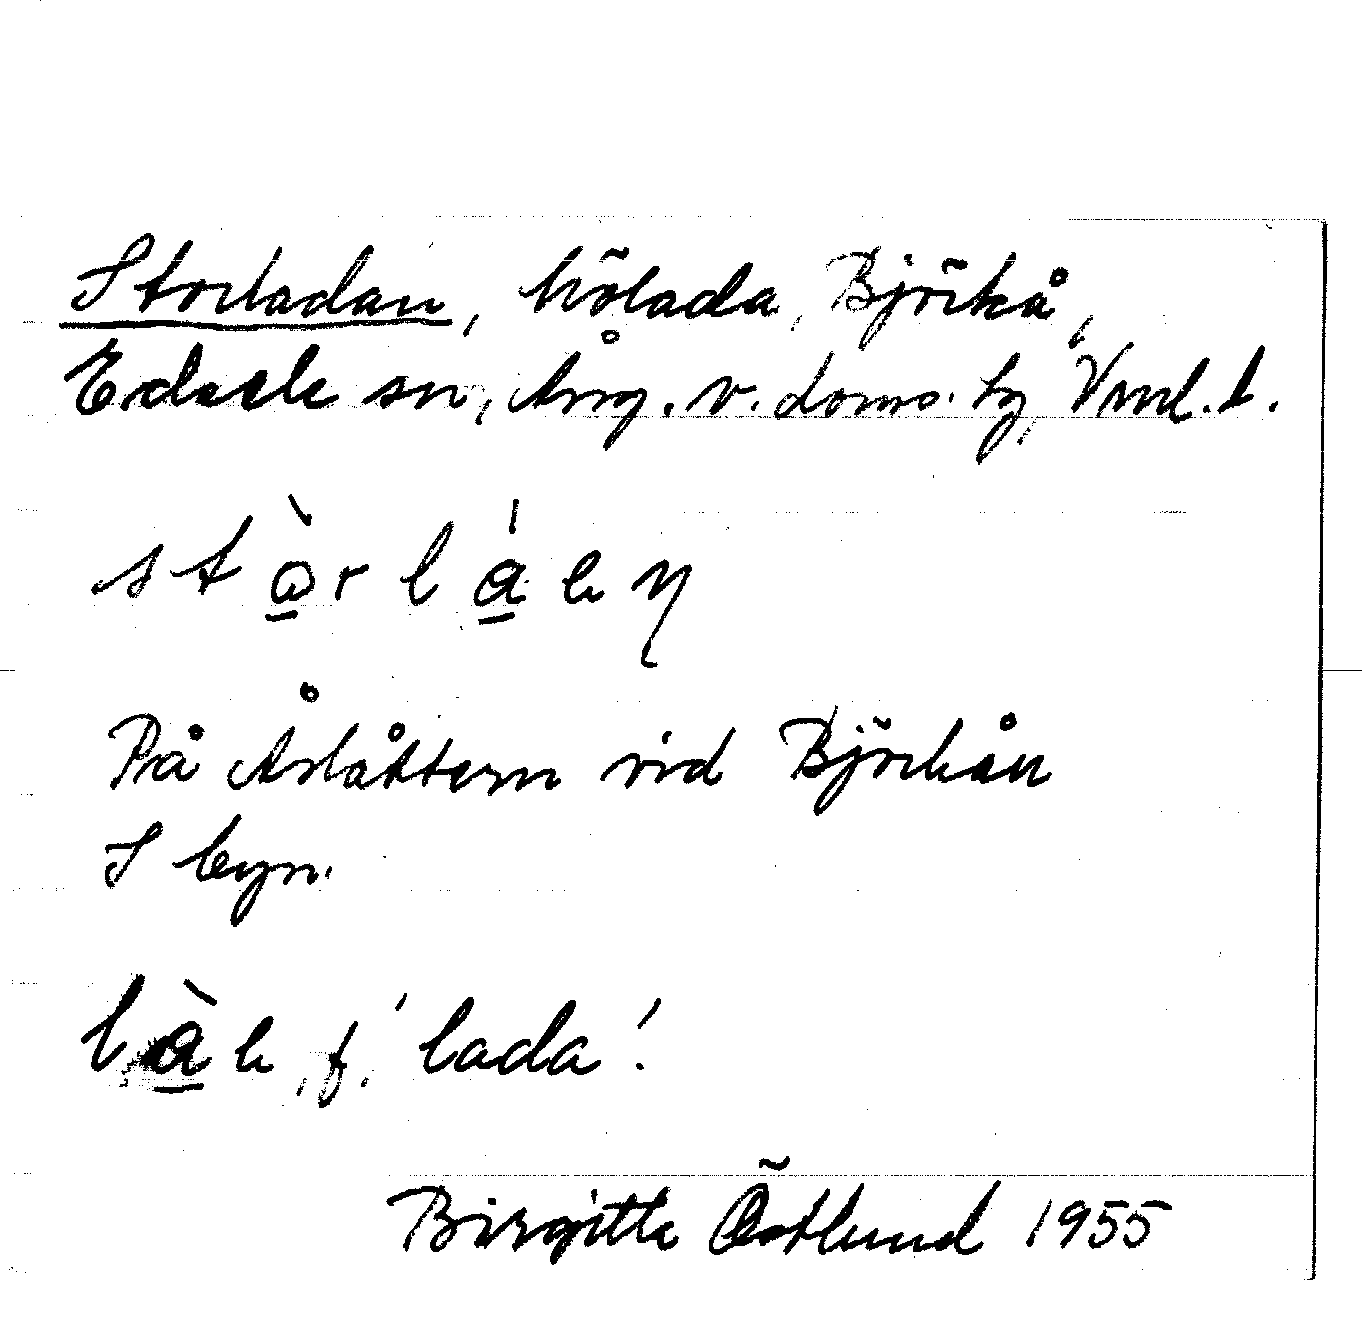 Storladan, hölada, Björkå,
Edsele sn, Ång. v. doms. hg, Vnnl. l.
stò̱rlá̱eŋ
På Åslåttern vid Björkån
S byn.
là̱e, f. 'lada'.
Birgitta Östlund 1955